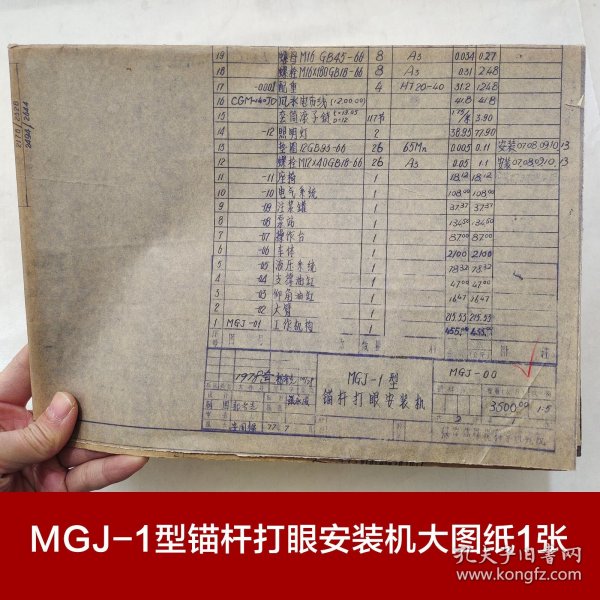 19 螺母M16 GB45-66 8 A3 0.034 0.27
18 螺栓M16X180GB18-66 8 A3 0.31 2.48
17 -0001 配重 4 HT20-40 31.2 124.8
16 风水电布线 1 41.8 41.8
15 套筒滚子链 117节 3.90
14 -12 照明灯 2 38.95 77.90
13 垫圈12GB93-66 26 65Mn 0.005 0.11 安装07080910,13
12 螺栓M12X40GB18-66 26 A3 0.05 1.1 安装07080910,13
11 -11 座椅 1 18.12 18.12
10 -10 电气系统 1 108.00 108.00
9 -09 注浆罐 1 37.37 37.37
8 -08 泵站 1 134.50 134.50
7 -07 操作台 1 87.00 87.00
6 -06 车体 1 2100 2100
5 -05 液压系统 1 78.32 78.32
4 -04 支撑油缸 1 47.00 47.00
3 -03 仰角油缸 1 16.47 16.47
2 -02 大臂 1 215.53 215.53
1 MGJ-01 工作机构 1 455.08 455.08
附注
MGJ-1型
锚杆打眼安装机
MGJ-00
3500.00 1:5
2176/2326
3494/2644
MGJ-1型锚杆打眼安装机大图纸1张
孔夫子旧书网
www.kongfz.com